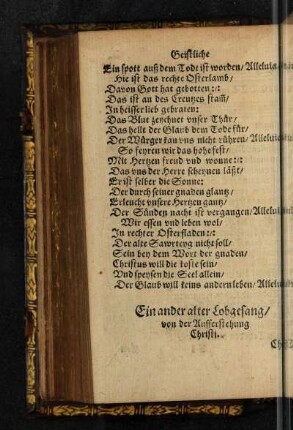 Geistliche
Ein spott auß dem Todt ist worden/ Alleluia
Hie ist das rechte Osterlamb/
Davon Gott hat gebotten:/:
Das ist an des Creutzes stam̃/
In heisser lieb gebraten:
Das Blut zeychnet vnser Thür/
Das hellt der Glaub dem Todt für/
Der Würger kan vns nicht rühren/ Alleluia
So feyren wir das hohe fest/
Mit Hertzen freud vnd wonne:/:
Das vns der Herr scheynen läßt/
Er ist selber die Sonne:
Der durch seiner gnaden glantz/
Erleucht vnsere Hertzen gantz/
Der Sünden nacht ist vergangen/ Alleluia
Wir essen vnd leben wol/
In rechter Osterfladen:/:
Der alte Sawrteyg nicht soll/
Sein bey dem Wort der gnaden/
Christus will die koste sein/
Vnd speysen die Seel allein/
Der Glaub will keins andern leben/ Alleluia
Ein ander alter Lobgesang/
von der Aufferstehung
Christi.